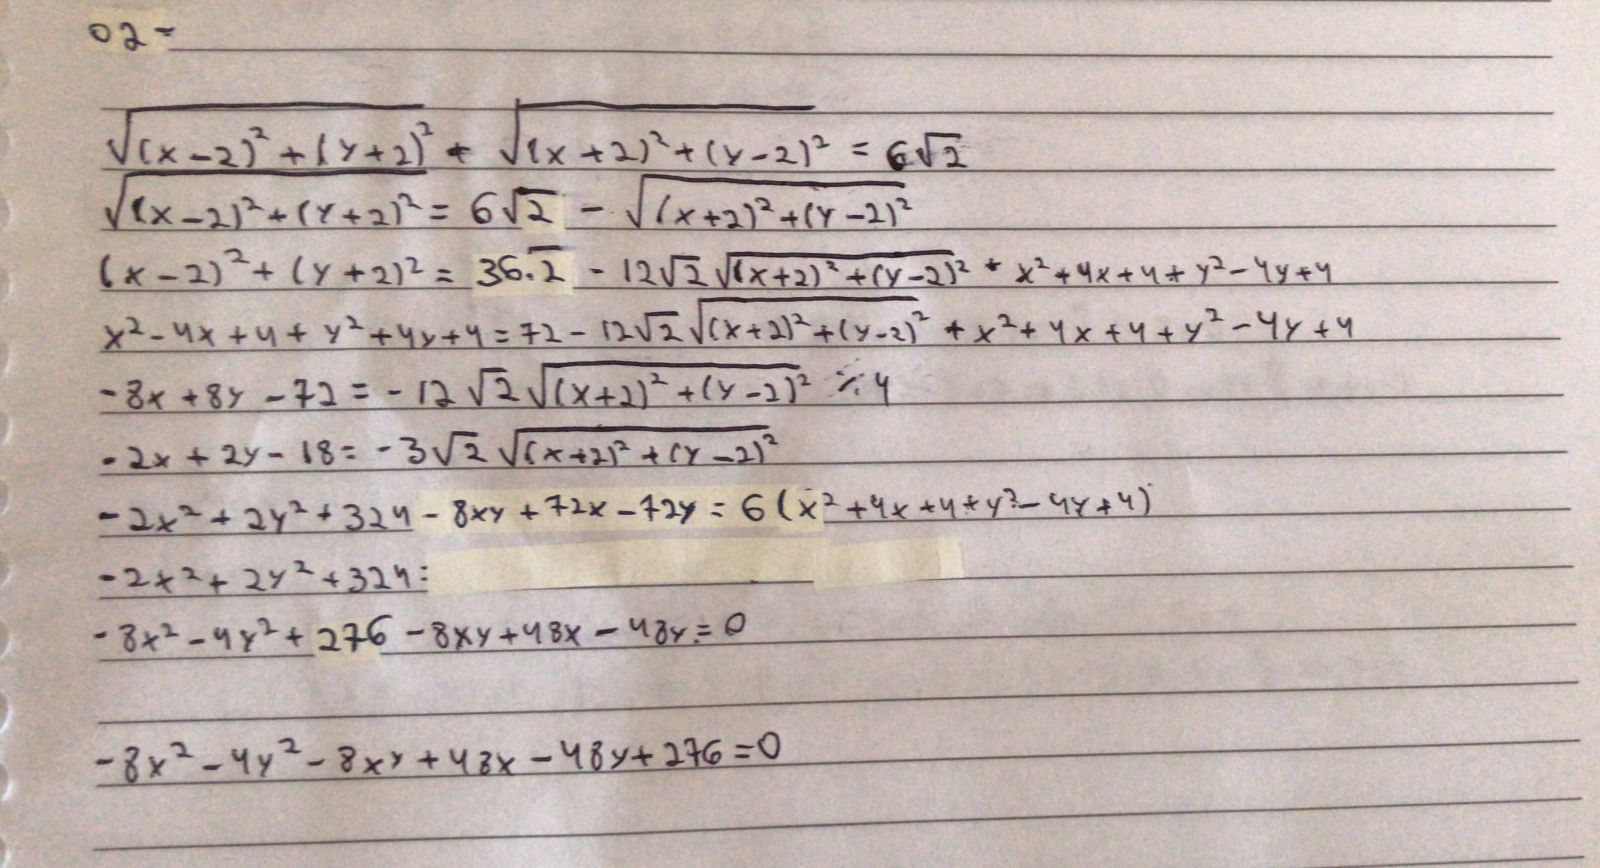 02-
√((x-2)²+(y+2)²) + √((x+2)²+(y-2)²) = 6√2
√((x-2)²+(y+2)²) = 6√2 - √((x+2)²+(y-2)²)
(x-2)²+(y+2)² = 36.2 - 12√2 √((x+2)²+(y-2)²) + x²+4x+4+y²-4y+4
x²-4x+4+y²+4y+4=72-12√2 √((x+2)²+(y-2)²) + x²+4x+4+y²-4y+4
-8x+8y-72=-12√2 √((x+2)²+(y-2)²) ÷4
-2x+2y-18=-3√2 √((x+2)²+(y-2)²)
-2x²+2y²+324-8xy+72x-72y=6(x²+4x+4+y²-4y+4)
-2x²+2y²+324=
-8x²-4y²+276-8xy+48x-48y=0
-8x²-4y²-8xy+48x-48y+276=0